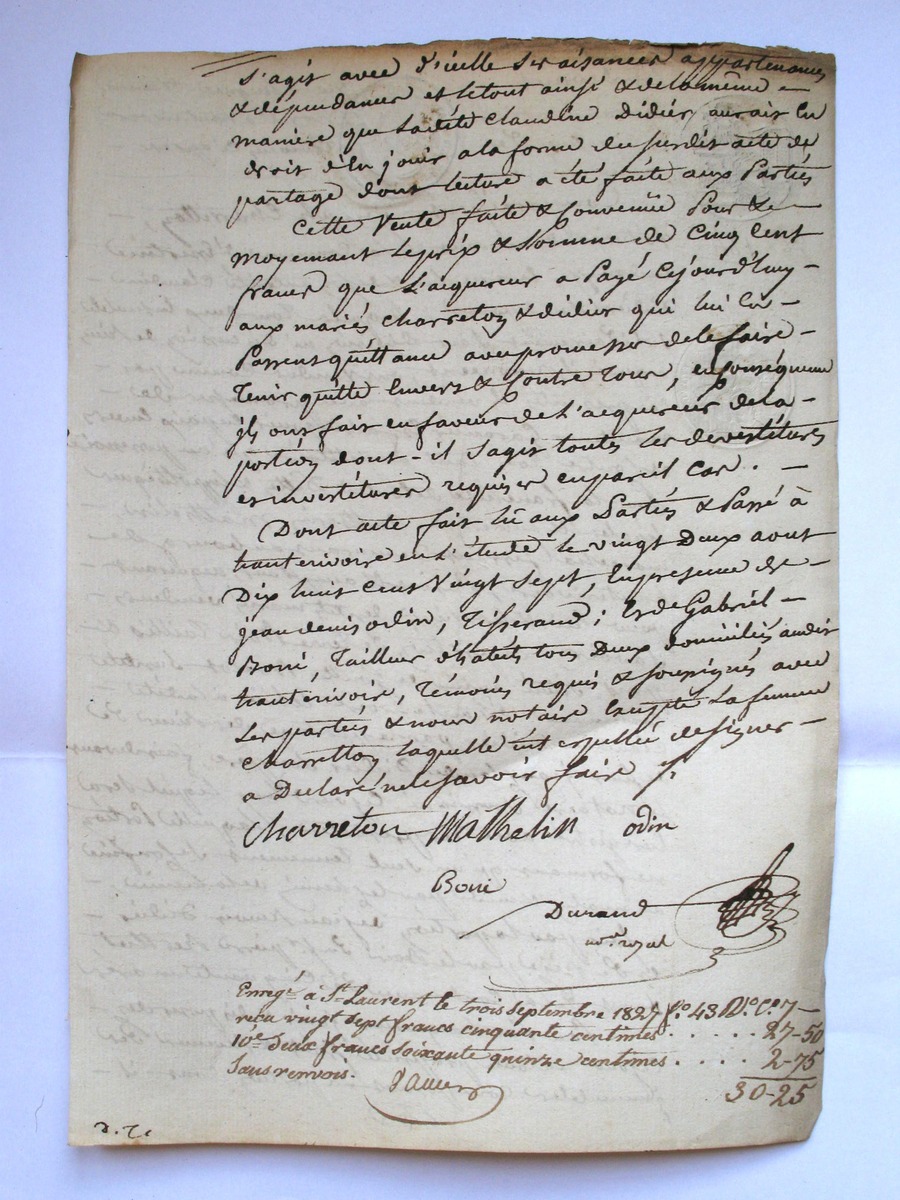 s'agit avec d'icelle ses aisances appartenances
& dépendances et letout ainsi & delamême –
maniere que ladite Claudine Didier aurait eu
droit d'en jouir a la forme du susdit acte de
partage dont lecture a été faite aux Parties
Cette Vente faite & Convenue Pour & –
moyennant leprix & Somme de Cinq Cent
francs que l'acquereur a Payé Cejourd'huy –
aux mariés Charreton & didier qui lui en –
Passent quittance avec promesse de lefaire –
Tenir quitte Envers & Contre Tous, enConséquence
ils ont fait enfaveur de l'acquereur de la –
portion dont – il s'agit toutes les devestitures
et investitures requises en pareil cas. –
Dont acte fait lû aux Parties & Passé à
hauterivoire en l'étude le vingt Deux aout
Dix huit cent Vingt Sept, Enpresence de –
jean denis odin, Tisserand; Et de Gabriel –
Boni, Tailleur d'habits tous Deux domiciliés audit
hauterivoire, Témoins requis & soussignés avec
Les parties & nous notaire Excepté Lafemme
Charretton laquelle de signer –
a Declaré nele savoir faire
Charreton Mathelin odin
Boni
Durand
no.re royal
Enregé à St Laurent le trois septembre 1827 fo. 43 Ro. Ce. 7 –
reçu vingt sept francs cinquante centimes . . . . . 27-50
10e deux francs soixante quinze centimes . . . . 2-75
Sans renvois.
30-25